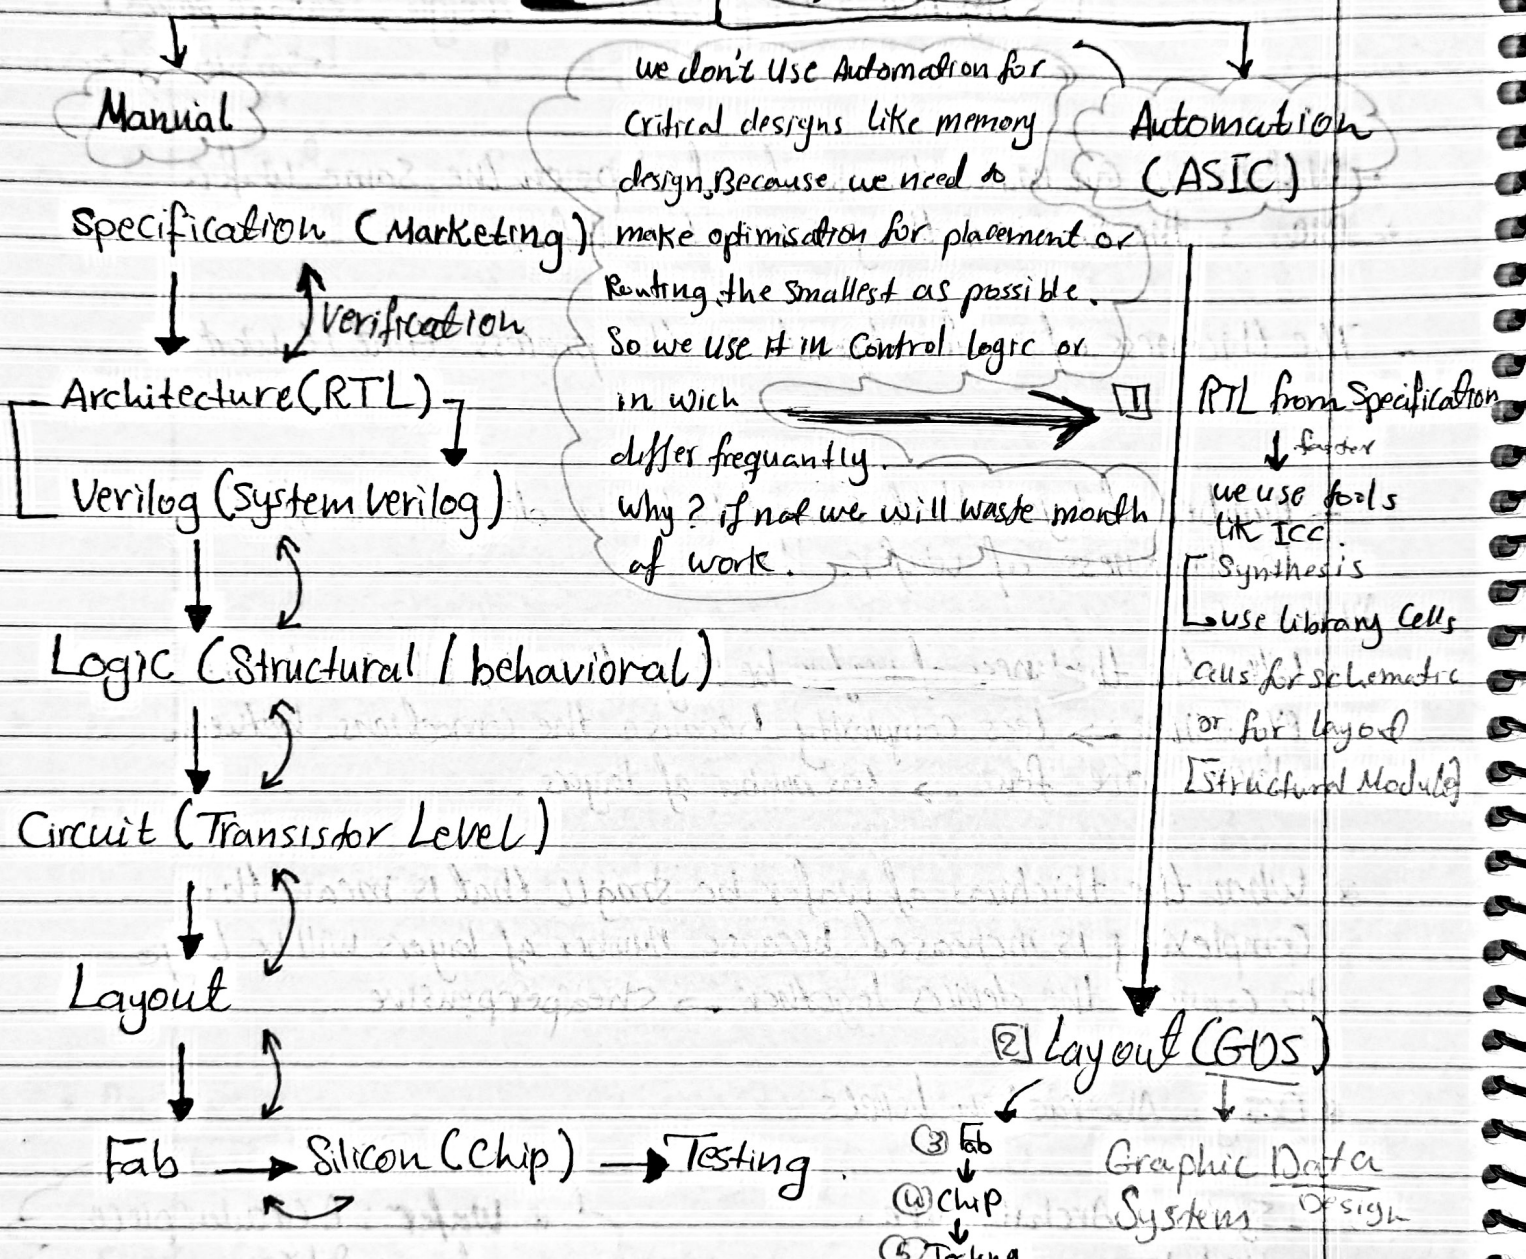 Manual
Specification (Marketing)
Verification
Architecture (RTL)
Verilog (System Verilog)
Logic (Structural / behavioral)
Circuit (Transistor Level)
Layout
Fab
Silicon (Chip)
Testing
we don't use Automation for
Critical designs like memory
design, Because we need to
make optimisation for placement or
Routing, the smallest as possible.
So we use it in Control logic or
in wich
differ frequantly.
Why? if not we will waste month
of work.
Automation
(ASIC)
1 RTL from Specification
faster
we use tools
like ICC
Synthesis
use library Cells
cells for schematic
or for layout
[Structural Module]
2 Layout (GDS)
Graphic Data
System Design
(3) Fab
(4) Chip
(5) Testing